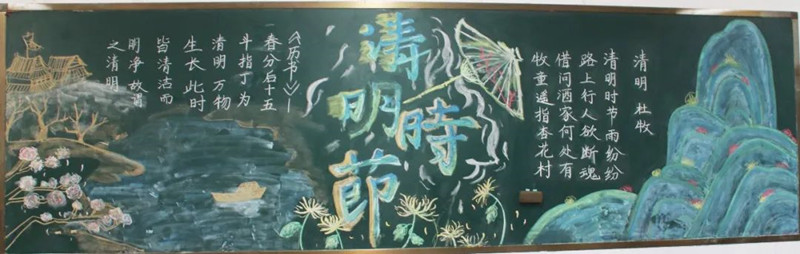 清明時節
清明 杜牧
清明时节雨纷纷
路上行人欲断魂
借问酒家何处有
牧童遥指杏花村
《历书》—
春分后十五
斗指丁为
清明 万物
生长 此时
皆清洁而
明净 故谓
之清明